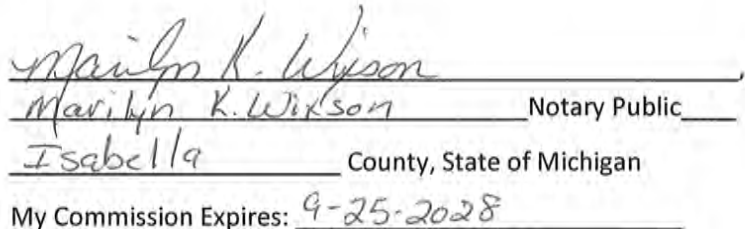 Marilyn K. Wixson,
Marilyn K. Wixson Notary Public
Isabella County, State of Michigan
My Commission Expires: 9-25-2028